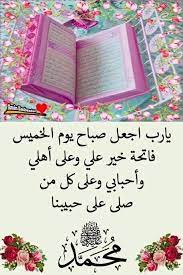 يارب اجعل صباح يوم الخميس
فاتحة خير علي وعلى أهلي
وأحبابي وعلى كل من
صلى على حبيبنا
محمد ﷺ